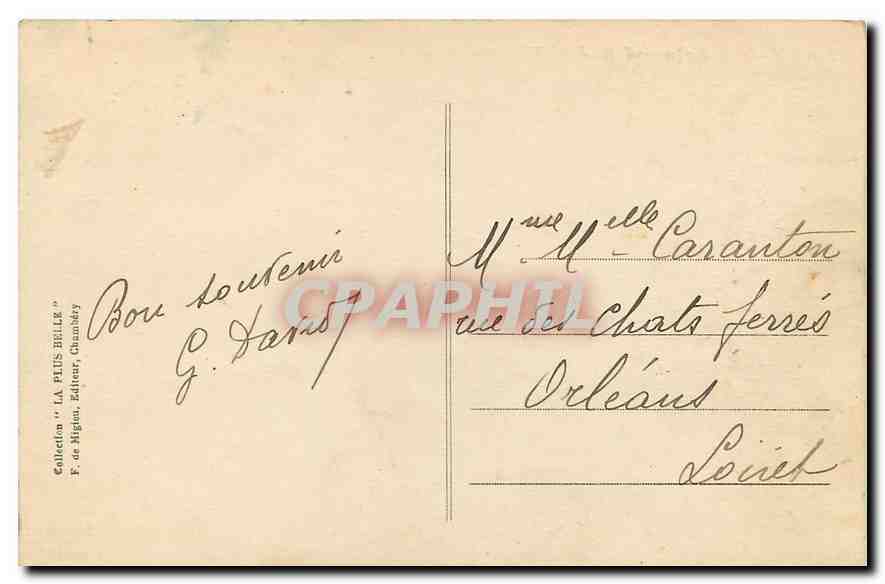 Collection " LA PLUS BELLE "
F. de Migieu, Editeur, Chambéry
Bon souvenir
G. David
CPAPHIL
Mme Melle Caranton
rue des Chats ferrés
Orléans
Loiret